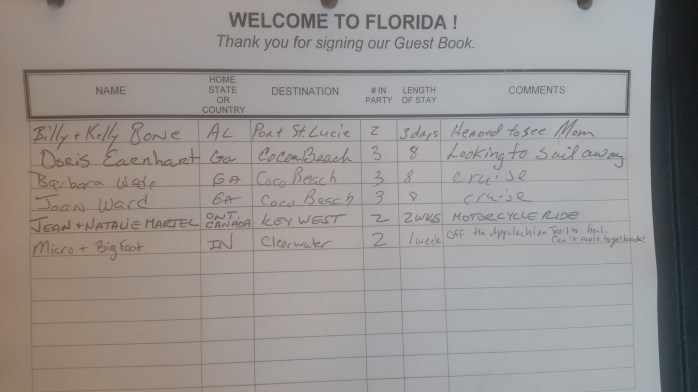 WELCOME TO FLORIDA !
Thank you for signing our Guest Book.
NAME HOME STATE OR COUNTRY DESTINATION # IN PARTY LENGTH OF STAY COMMENTS
Billy + Kelly Bone AL Port St. Lucie 2 3 days Headed to see Mom
Doris Earnhart Ga Cocoa Beach 3 8 Looking to sail away
Barbara Wade GA Coco Beach 3 8 cruise
Joan Ward GA Coco Beach 3 8 cruise
JEAN + NATALIE MARTEL ONT. CANADA KEY WEST 2 2 WKS MOTORCYCLE RIDE
Micro + Bigfoot IN Clearwater 2 1 week Off the Appalachian Trail to heal. Can't wait to get back!